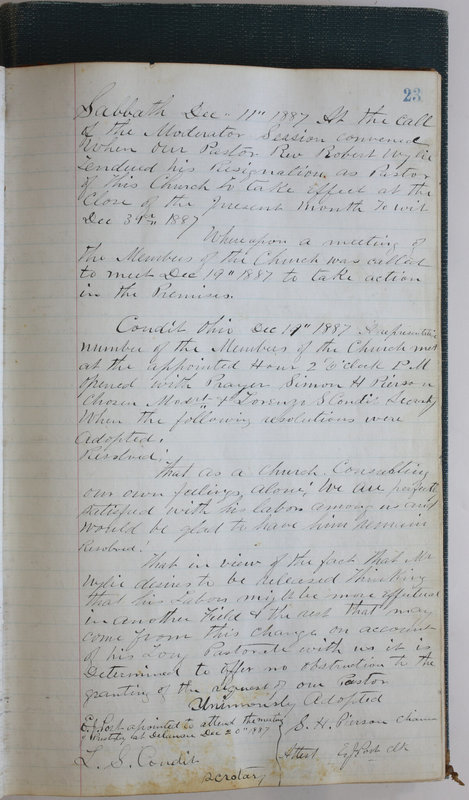 23
Sabbath Dec 11" 1887 At the call
of the Moderator Session convened
When our Pastor Rev Robert Wylie
tendered his Resignation as Pastor
of this Church to take Effect at the
Close of the Present Month To wit
Dec 31st 1887
Whereupon a meeting of
the Members of the Church was called
to meet Dec 19" 1887 to take action
in the Premises.
Condit Ohio Dec 19" 1887 A representative
number of the Members of the Church met
at the appointed Hour 2 O'clock P.M
opened with Prayer Simon H Pierson
chosen Modert & Lorenzo S Condit Secretary
When the following resolutions were
adopted.
Resolved!
That as a Church. Consulting
our own feelings, alone, We are perfectly
satisfied with his labors among us and
would be glad to have him remain
Resolved!
That in view of the fact that Mr
Wylie desires to be Released Thinking
that his Labors might be more effectual
in another Field & the rest that may
come from this change on account
of his Long Pastorate with us it is
Determined to offer no obstruction to the
granting of the request of our Pastor
Unimously Adopted
E J Post apointed to attend the meeting
at Delaware Dec 20" 1887
S. H. Pierson Chairman
L. S. Condit
Secrotary
Attest E J Post clk